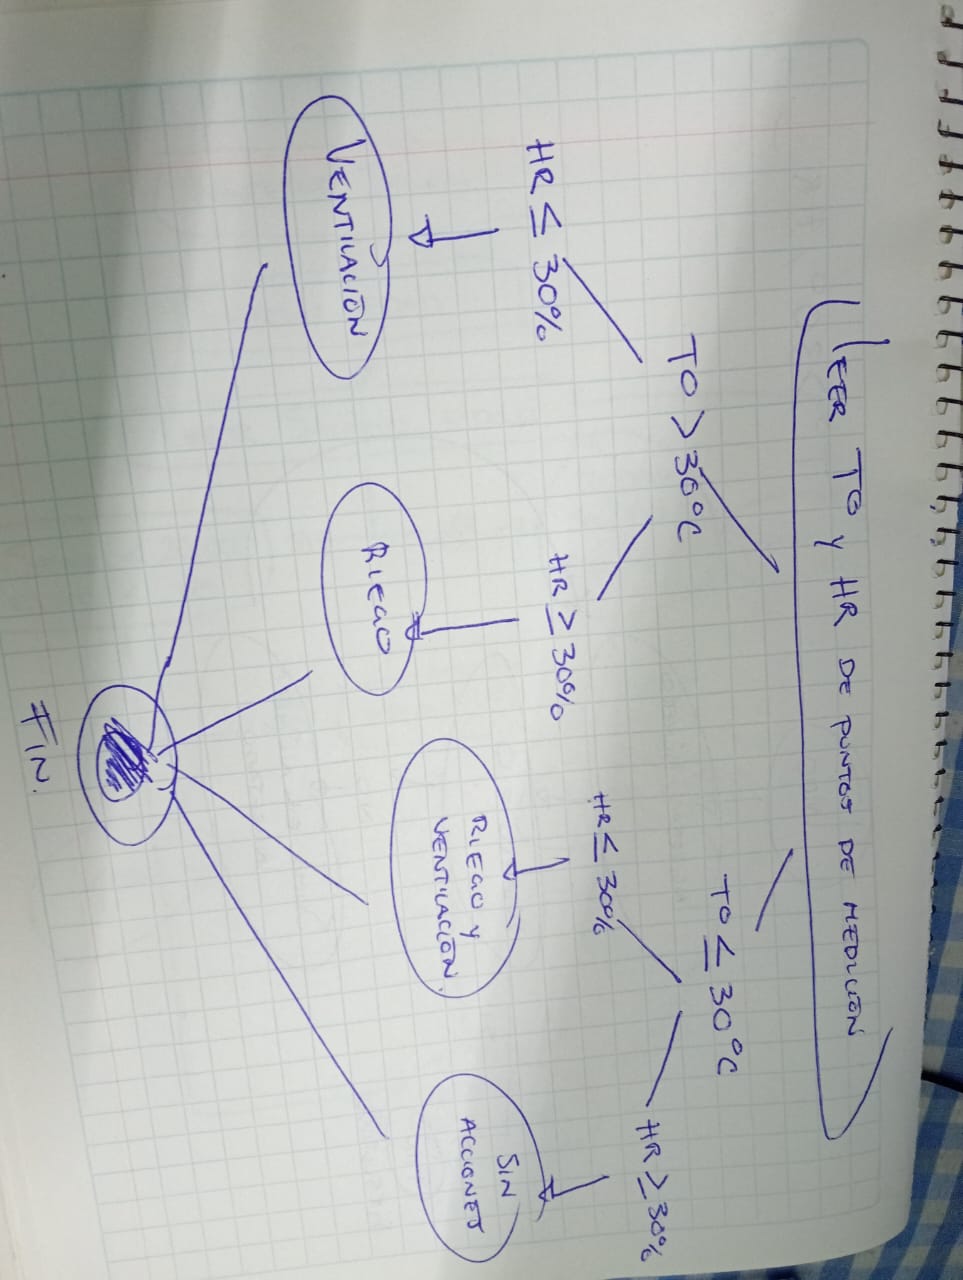 LEER TO y HR DE PUNTOS DE MEDICIÓN
TO > 30°C
TO ≤ 30°C
HR ≤ 30%
HR ≥ 30%
HR ≤ 30%
HR ≥ 30%
VENTILACIÓN
RIEGO
RIEGO y
VENTILACIÓN.
SIN
ACCIONES
FIN.